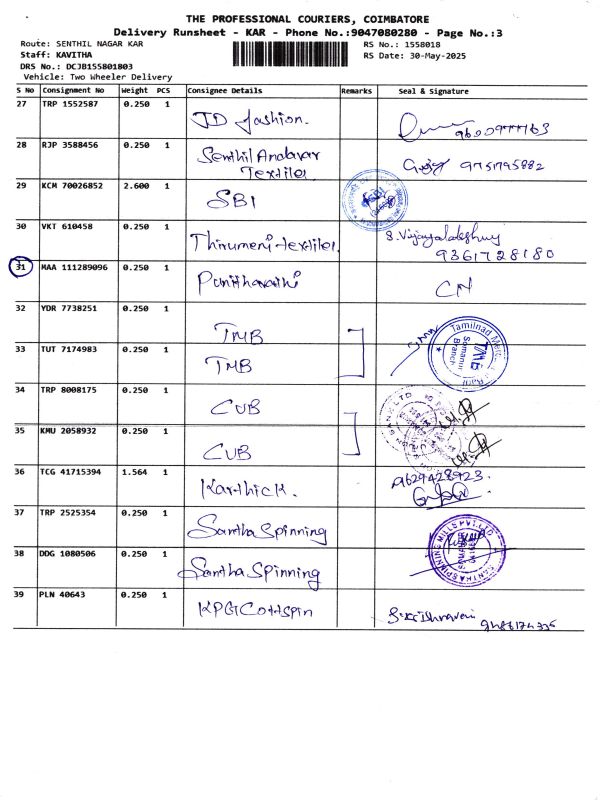 THE PROFESSIONAL COURIERS, COIMBATORE
Delivery Runsheet - KAR - Phone No.:9047080280 - Page No.:3
Route: SENTHIL NAGAR KAR
RS No.: 1558018
Staff: KAVITHA
RS Date: 30-May-2025
DRS No.: DCJB155801803
Vehicle: Two Wheeler Delivery
S No Consignment No Weight PCS Consignee Details Remarks Seal & Signature
27 TRP 1552587 0.250 1 JD fashion.
28 RJP 3588456 0.250 1 Senthil Andavar
Textiles 9751795882
29 KCM 70026852 2.600 1 SBI
30 VKT 610458 0.250 1 Thirumeni textiles. S. Vijayalakshmy
9361728180
31 MAA 111289096 0.250 1 Punitharathi CN
32 YDR 7738251 0.250 1 TMB
Tamilnad
TMB
Somanur
Branch
33 TUT 7174983 0.250 1 TMB
34 TRP 8008175 0.250 1 CUB
35 KMU 2058932 0.250 1 CUB
36 TCG 41715394 1.564 1 Karthick. 9629428923.
37 TRP 2525354 0.250 1 Santha Spinning
SANTHA SPINNING MILLS PVT. LTD
38 DDG 1080506 0.250 1 Santha Spinning
39 PLN 40643 0.250 1 KPG Cottspin